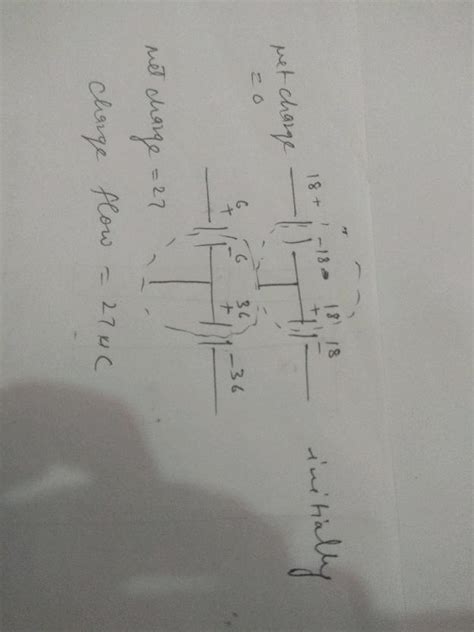 initially
18 + - 18 18 + - 18
net charge
= 0
6 + - 6 36 + - 36
net charge = 27
charge flow = 27 μC